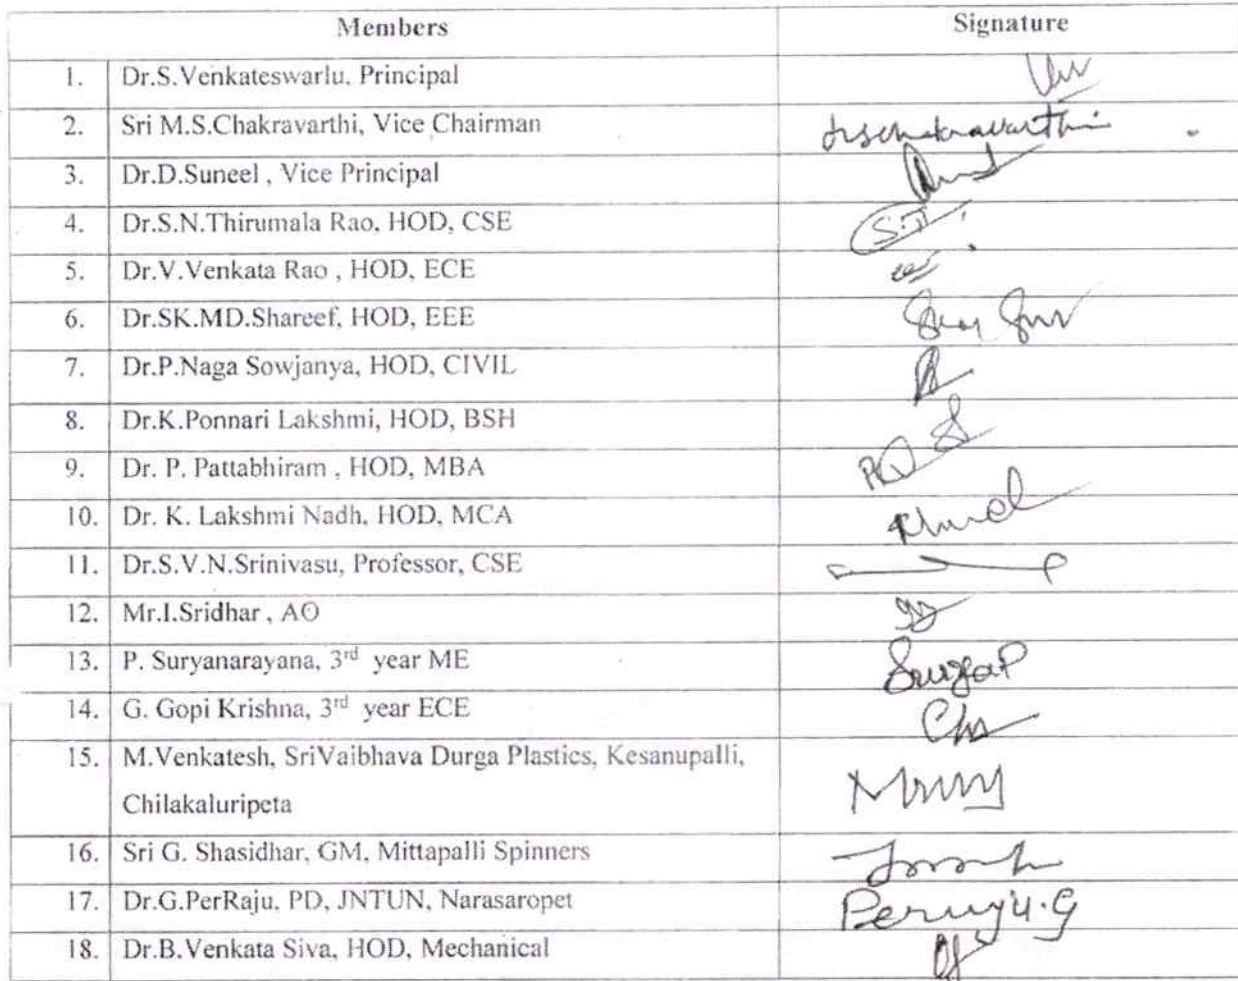 Members Signature
1. Dr.S.Venkateswarlu, Principal
2. Sri M.S.Chakravarthi, Vice Chairman
3. Dr.D.Suneel , Vice Principal
4. Dr.S.N.Thirumala Rao, HOD, CSE
5. Dr.V.Venkata Rao , HOD, ECE
6. Dr.SK.MD.Shareef, HOD, EEE
7. Dr.P.Naga Sowjanya, HOD, CIVIL
8. Dr.K.Ponnari Lakshmi, HOD, BSH
9. Dr. P. Pattabhiram , HOD, MBA
10. Dr. K. Lakshmi Nadh, HOD, MCA
11. Dr.S.V.N.Srinivasu, Professor, CSE
12. Mr.I.Sridhar , AO
13. P. Suryanarayana, 3rd year ME
14. G. Gopi Krishna, 3rd year ECE
15. M.Venkatesh, SriVaibhava Durga Plastics, Kesanupalli,
Chilakaluripeta
16. Sri G. Shasidhar, GM, Mittapalli Spinners
17. Dr.G.PerRaju, PD, JNTUN, Narasaropet
18. Dr.B.Venkata Siva, HOD, Mechanical